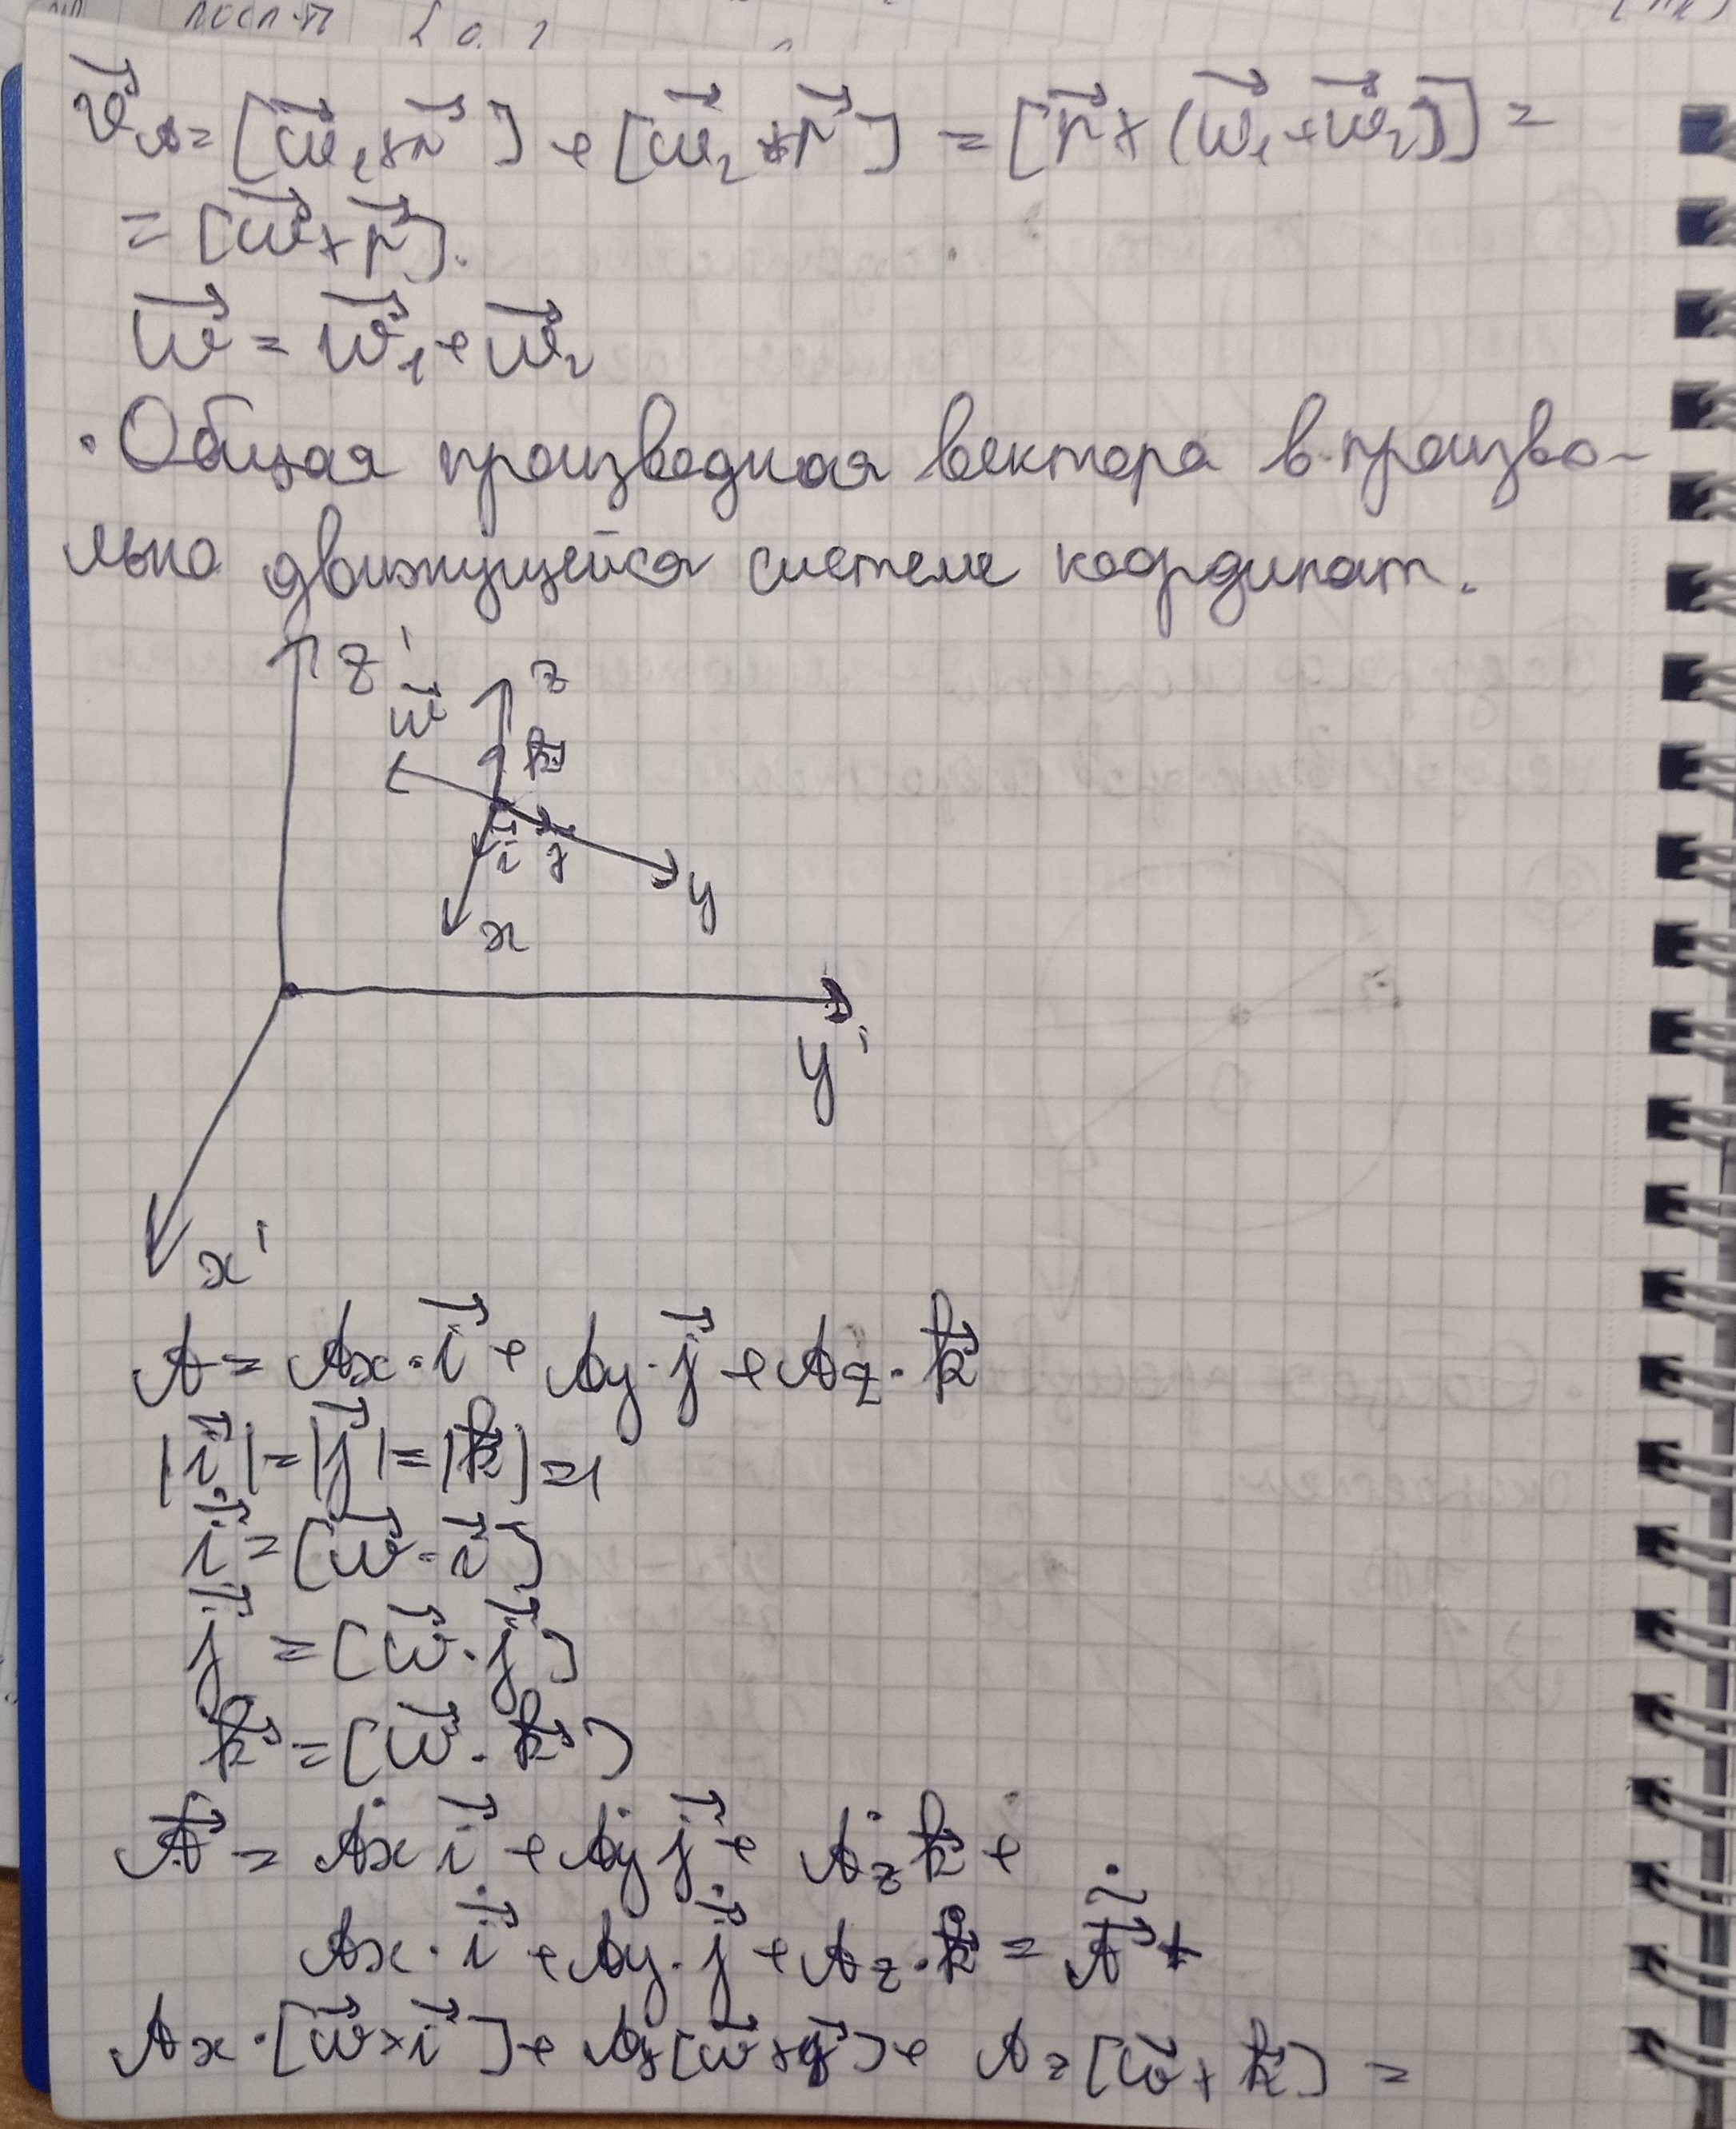 посл-
v⃗_A = [w⃗₁ × r⃗] + [w⃗₂ × r⃗] = [r⃗ × (w⃗₁ + w⃗₂)] =
= [w⃗ × r⃗].
w⃗ = w⃗₁ + w⃗₂
· Общая производная вектора в произво-
льно движущейся системе координат.
z'
z
w⃗
k⃗
i⃗ j⃗
y
x
y'
x'
A = Ax · i⃗ + Ay · j⃗ + Az · k⃗
|i⃗| = |j⃗| = |k⃗| = 1
i⃗̇ = [w⃗ · i⃗]
j⃗̇ = [w⃗ · j⃗]
k⃗ = [w⃗ · k⃗]
A⃗̇ = Ȧx i⃗ + Ȧy j⃗ + Ȧz k⃗ +
Ax · i⃗̇ + Ay · j⃗̇ + Az · k⃗̇ = Ã⃗̇ +
Ax · [w⃗ × i⃗] + Ay [w⃗ × j⃗] + Az [w⃗ × k⃗] =